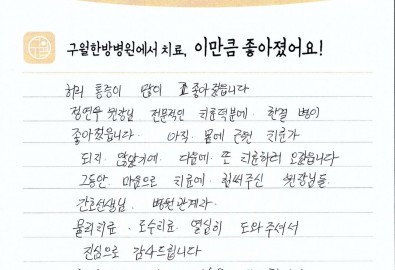 구월한방병원에서 치료, 이만큼 좋아졌어요!
허리 통증이 많이 좋아졌습니다
정연우 원장님 전문적인 치료덕분에. 한결 많이
좋아졌습니다. 아직. 몸에 근원 치료가
되지 않았기에. 다음에 또 치료하러 오겠습니다
그동안. 마음으로 치료에. 힘써주신 원장님들.
간호선생님. 병원관계자.
물리치료. 도수치료. 열심히 도와주셔서
진심으로 감사드립니다